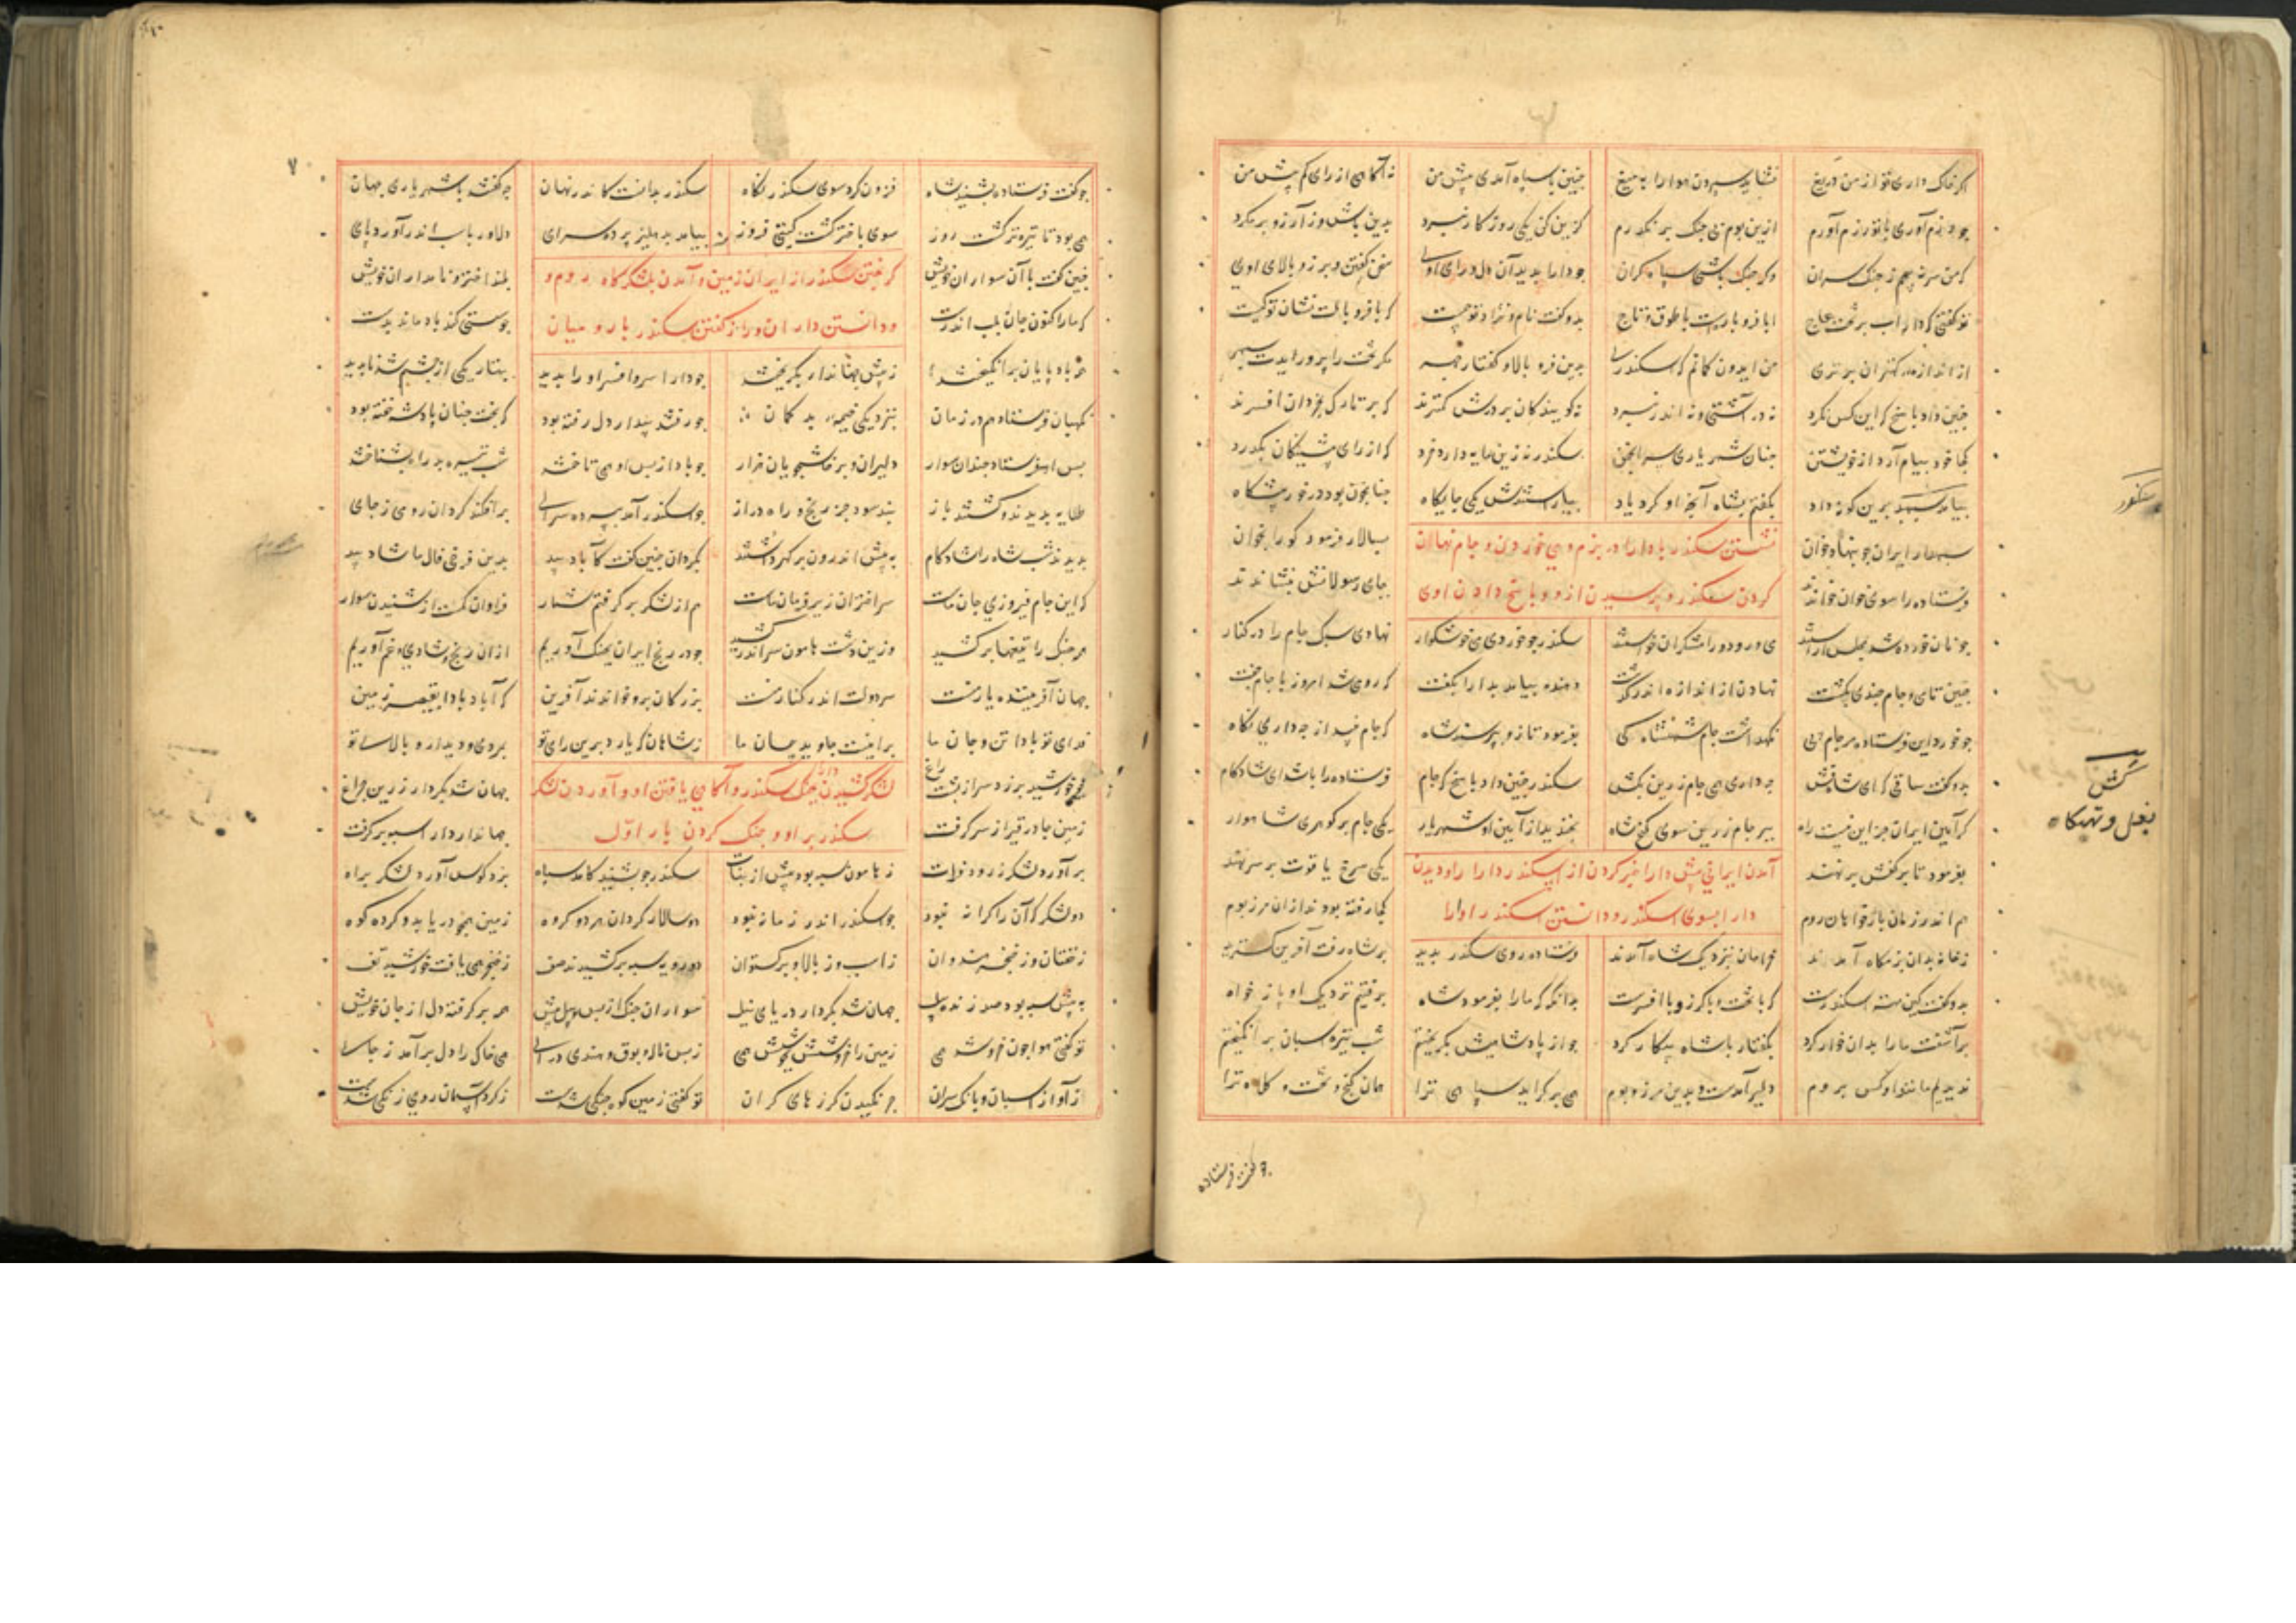 اگر خاک داری تو از من دریغ نشاید سپردن هوا را به میغ چنین با سپاه آمدی پیش من نه آگاهی از رای کم بیش من
چو رزم آوری با تو رزم آورم ازین بوم بی جنگ برنگذرم گزین کن یکی روزگار نبرد بدین باش وز آرزو برمگرد
که من سر نپیچم ز جنگ سران وگر جنگ باشد سپاه گران چو دارا بدید آن دل و رای اوی سخن گفتن و برز و بالای اوی
تو گفتی که داراست بر تخت عاج ابا فر و با یاره با طوق و تاج بدو گفت نام و نژاد تو چیست که بر فر و یالت نشان کییست
از اندازه کهتران برتری من ایدون گمانم که اسکندری بدین فر و بالا و گفتار و چهر مگر تخت را پرورایدت سپهر
چنین داد پاسخ که این کس نکرد نه در آشتی و نه اندر نبرد نه گویندگان بر درش کمترند که بر تارک بخردان افسرند
کجا خود پیام آرد از خویشتن چنان شهریاری سر انجمن سکندر نه زین مایه دارد خرد که از رای پیشینگان بگذرد
پیامم سپهبد برین گونه داد بگفتم بشاه آنچه او کرد یاد بیاراستندش یکی جایگاه چنانچون بود در خور پیشگاه
سپهدار ایران چو بنهاد خوان نشستن سکندر با دارا در بزم و می خوردن و جام نهان بسالار فرمود کو را بخوان
فرستاده را سوی خوان خواندند کردن سکندر و پرسیدن ازو و پاسخ دادن اوی بجای رسولانش بنشاندند
چو نان خورده شد مجلس آراستند می و رود و رامشگران خواستند سکندر چو خوردی می خوشگوار نهادی سبک جام را در کنار
چنین تا می و جام چندی بگشت نهادن از اندازه اندر گذشت دهنده بیامد بدارا بگفت که رومی شد امروز با جام جفت
بفرمود تا زو بپرسید شاه که جام نبید از چه داری نگاه
بدو گفت ساقی که ای شیرفش چه داری همی جام زرین بکش سکندر چنین داد پاسخ که جام فرستاده را باشد ای شادکام
گر آیین ایران جز این نیست راه ببر جام زرین سوی گنج شاه بخندید از آیین او شهریار یکی جام پر گوهر شاهوار
بفرمود تا بر کفش بر نهند آمدن ایرانی پیش دارا خبر کردن از اسکندر دارا را و دیدن یکی سرخ یاقوت بر سر نهند
هم اندر زمان باژخواهان روم دارا بسوی اسکندر و دانستن اسکندر او را کجا رفته بودند ازان مرز و بوم
ز خانه بدان بزمگاه آمدند خرامان بنزدیک شاه آمدند فرستاده روی سکندر بدید بر شاه رفت آفرین گسترید
بدو گفت کین مهتر اسکندرست که با تخت و با گرز و با افسرست بدانگه که ما را بفرمود شاه برفتیم نزدیک او باژخواه
برآشفت ما را بدان خوار کرد بگفتار با شاه پیکار کرد چو از پادشاهیش بگریختم شب تیره اسبان برانگیختم
ندیدیم مانند او کس بروم دلیر آمدست و بدین مرز و بوم همی برگراید سپاهی ترا همان گنج و تخت و کلاه ترا
سکندر
کش
بغل و تهیگاه
چو گفت فرستاده
چو گفت فرستاده بشنید شاه فزون کرد سوی سکندر نگاه سکندر بدانست کاندر نهان چه گفتند با شهریار جهان
همی بود تا تیره‌تر گشت روز سوی باختر گشت گیتی فروز بیامد بدهلیز پرده سرای دلاور باسب اندر آورد پای
چنین گفت با آن سواران خویش گریختن سکندر از ایران زمین و آمدن بلشکرگاه روم و بلند اختر و نامداران خویش
که ما را کنون جان باسب اندرست چو سستی کند باد ماند بدست
همه بادپایان برانگیختند ز پیش جهاندار بگریختند چو دارا سر و افسر او را ندید
نگهبان فرستاد هم در زمان بنزدیکی خیمه بدگمان چو رفتند بیداردل رفته بود که بخت چنان پادشه خفته بود
پس او فرستاد چندان سوار دلیران و پرخاشجویان هزار چو باد از پس او همی تاختند شب تیره بد راه نشناختند
طلایه بدیدند و گشتند باز نبد سود جز رنج و راه دراز چو اسکندر آمد بپرده سرای برآمد ز گردان رومی ز جای
بدیدند شب شاه را شادکام به پیش اندرون پر گهر چار جام بگردان چنین گفت کآباد بید بدین فرخی فال ما شاد بید
که این جام پیروزی جان ماست سر اختران زیر فرمان ماست هم از لشکرش برگرفتم شمار فراوان کمست از شنیدن سوار
همه جنگ را تیغها برکشید وزین دشت هامون سر اندر کشید چو در رنج ایران بچنگ آوریم
جهان آفریننده یار منست سر دولت اندر کنار منست بزرگان برو خواندند آفرین که آباد بادا بقیصر زمین
فدای تو بادا تن و جان ما برینست جاوید پیمان ما ز شاهان که یارد برین رای تو بمردی و دیدار و بالای تو
چو خورشید برزد سر از پشت راغ لشکر کشیدن دارا بجنگ سکندر و آگاهی یافتن او و آوردن لشکر جهان شد بکردار زرین چراغ
زمین چادر قیر از سر گرفت سکندر بر او و جنگ کردن بار اول جهاندار دارا سپه برگرفت
برآورد لشکر ز رود فرات ز هامون سپه بود بیش از نبات سکندر چو بشنید کآمد سپاه بزد کوس آورد لشکر براه
دو لشکر که آن را کرانه نبود چو اسکندر اندر زمانه نبود دو سالار گردان هر دو گروه
ز خفتان وز خنجر هندوان ز اسب وز بالا و برگستوان دو رویه سپه برکشیدند صف ز خنجر همی یافت خورشید تف
به پیش سپه بود صد زنده پیل جهان شد بکردار دریای نیل
تو گفتی هوا چون خروشد همی زمین را خروشش بجوشد همی ز بس ناله بوق و هندی درای همی خاک را دل برآمد ز جای
از آواز اسبان و بانگ سران چرنگیدن گرزهای گران تو گفتی زمین کوه جنگی شدست ز گرد آسمان روی زنگی شدست